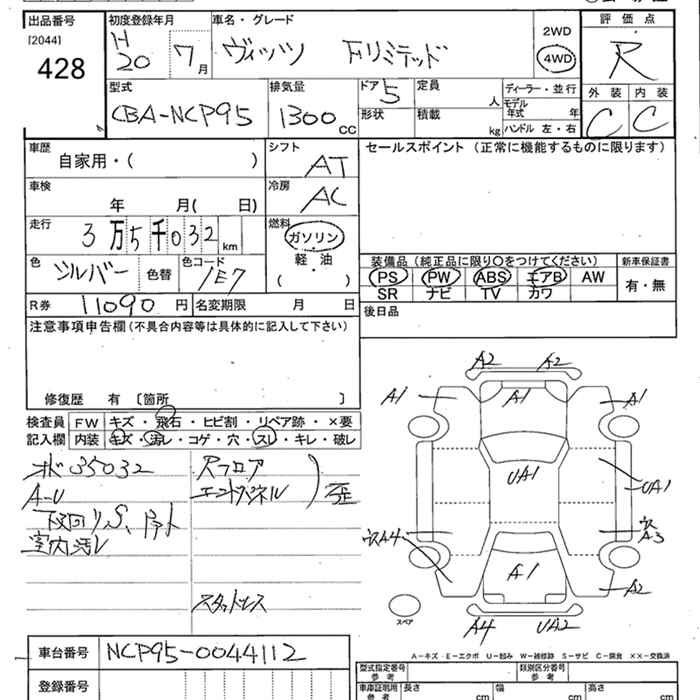 出品番号 初度登録年月 車名・グレード 評価点
[2044] 428
H20 7月 ヴィッツ Fリミテッド 2WD 4WD R
型式 排気量 ドア 5 定員 人 ディーラー・並行 外装 内装
CBA-NCP95 1300 CC 形状 積載 kg モデル年式 年 ハンドル 左・右 C C
車歴 シフト セールスポイント (正常に機能するものに限ります)
自家用・( ) AT
車検 冷房
年 月( 日) AC
走行 燃料
3万5千032 km ガソリン
色 シルバー 色替 色コード 1E7 軽油 ( )
装備品 (純正品に限り○をつけてください) 新車保証書
PS PW ABS エアB AW 有・無
SR ナビ TV カワ
R券 11090 円 名変期限 月 日 後日品
注意事項申告欄 (不具合内容等は具体的に記入して下さい)
修復歴 有 〔箇所 〕
検査員 FW キズ・飛石・ヒビ割・リペア跡・×要
記入欄 内装 キズ・汚レ・コゲ・穴・スレ・キレ・破レ
35032 Rフロア
A-U エンドパネル 歪
下回リS、
室内汚レ
スタットレス
A2 A2
A1 A1 A1
UA1 UA1
A4 A3
A1 A2
A4 UA2
スペア
A-キズ・E-エクボ U-凹み W-補修跡 S-サビ C-腐食 XX-交換済
車台番号 NCP95-0044112
登録番号
型式指定番号 参考 類別区分番号 参考
車庫証明用 参考 長さ cm 幅 cm 高さ cm